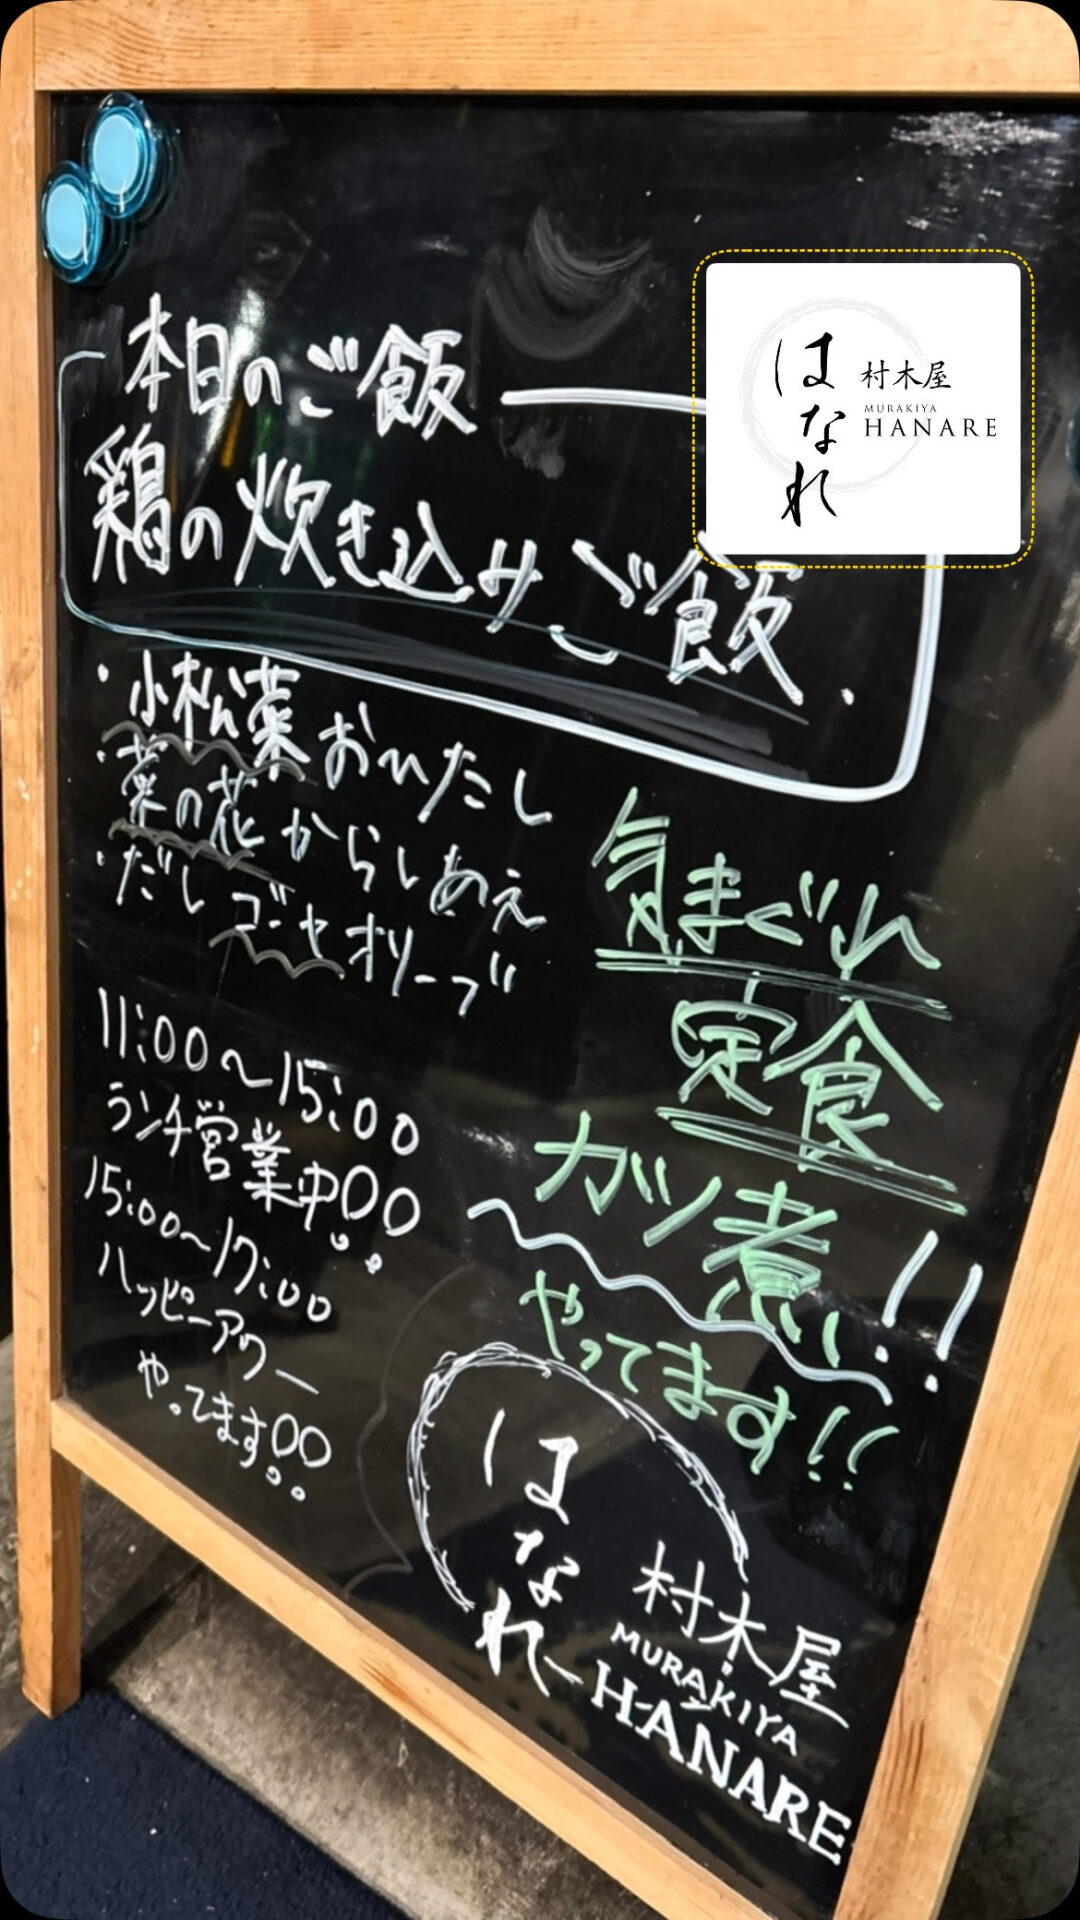 本日のご飯
鶏の炊き込みご飯.
・小松菜おひたし
・菜の花からしあえ
・だしゴーヤオリーブ
11:00～15:00
ランチ営業中!!
15:00～17:00
ハッピーアワー
やってます!!
気まぐれ
定食
カツ煮!!
やってます!!
はなれ
村木屋
MURAKIYA
HANARE
はなれ
村木屋
MURAKIYA
HANARE